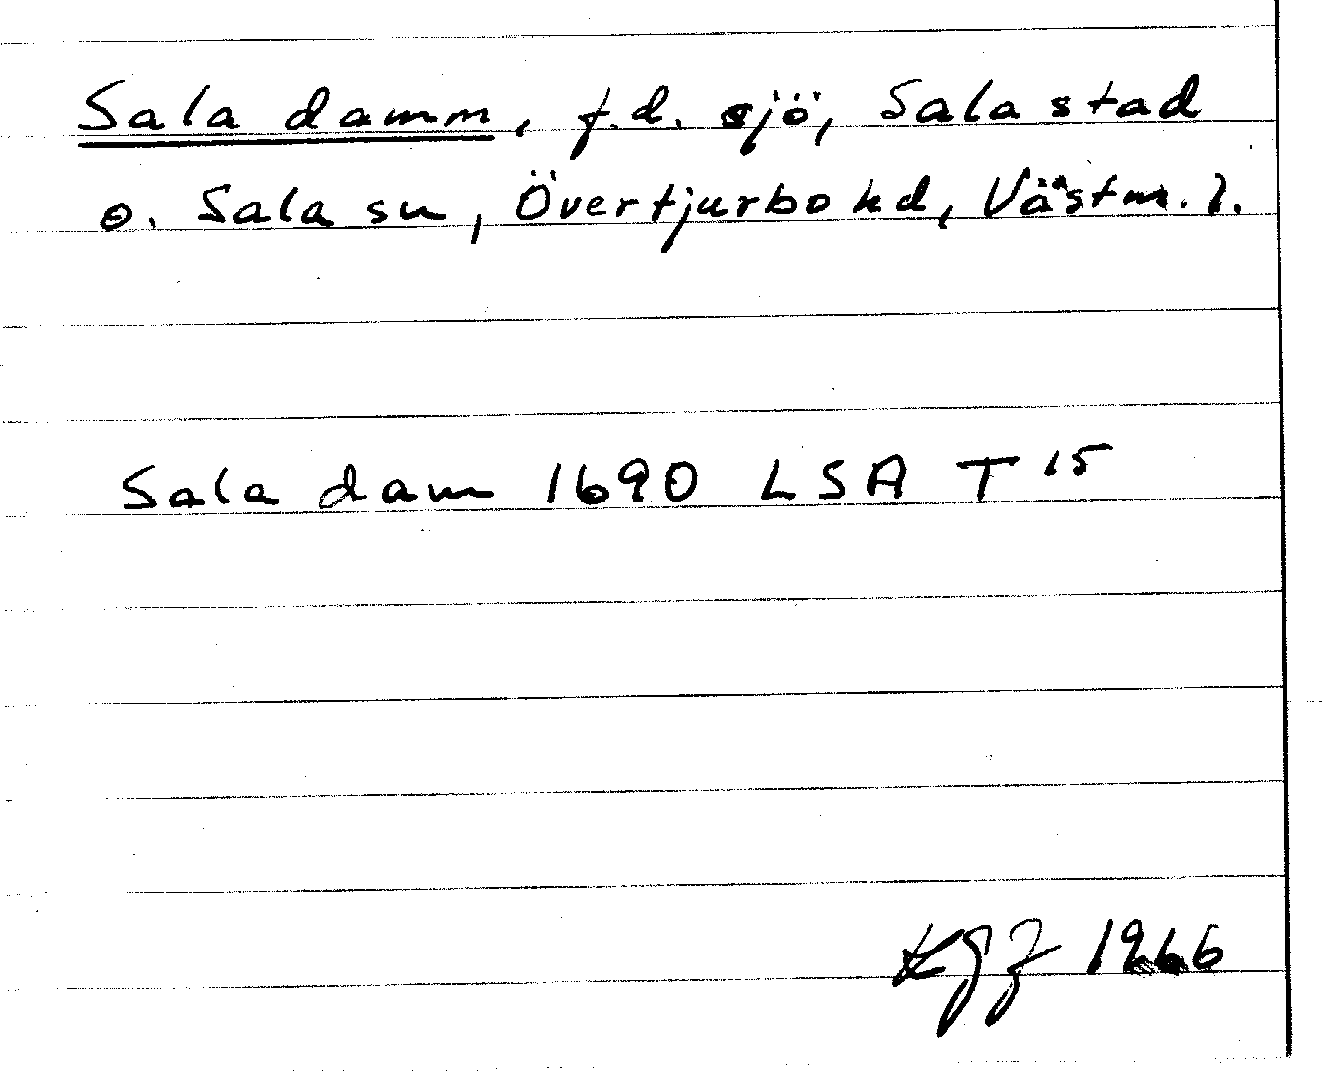 Sala damm, f.d. sjö, Sala stad
o. Sala sn, Övertjurbo hd, Västm. l.
Sala dam 1690 LSA T 15
1966